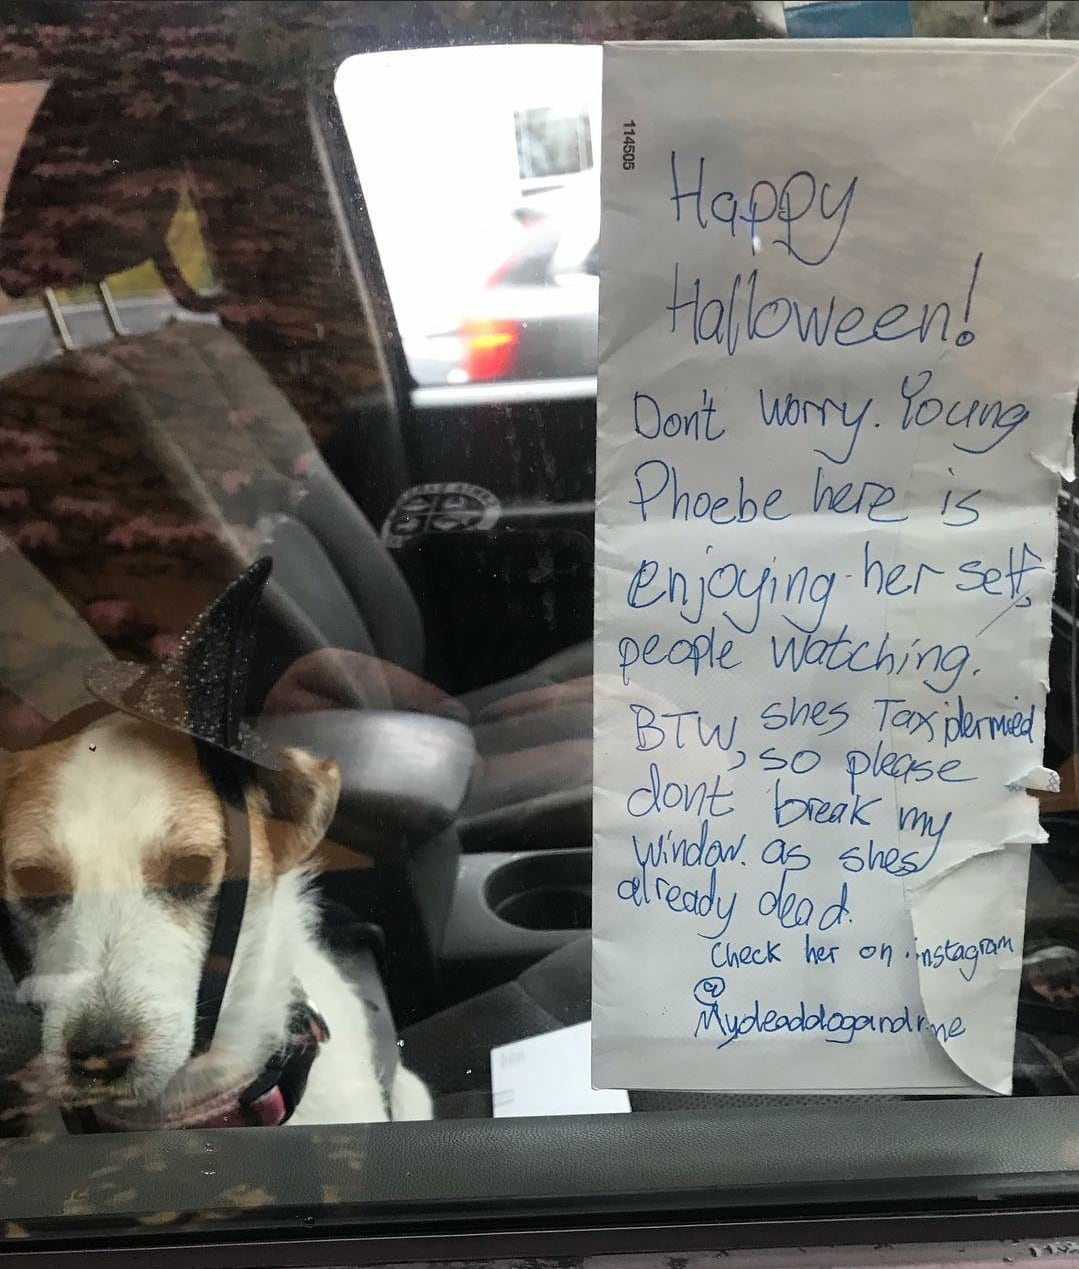 114505
Happy
Halloween!
Don't worry. Young
Phoebe here is
enjoying her self,
people watching.
BTW, shes Taxidermied
so please
dont break my
window. as shes
already dead.
Check her on instagram
@
Mydeaddogandme